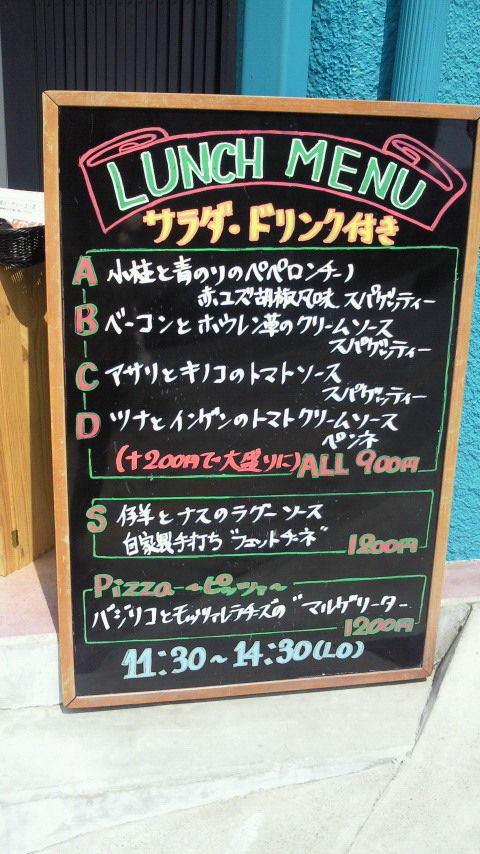 LUNCH MENU
サラダ・ドリンク付き
A 小柱と青のりのペペロンチーノ
赤ユズ胡椒風味 スパゲッティー
B ベーコンとホウレン草のクリームソース
スパゲッティー
C アサリとキノコのトマトソース
スパゲッティー
D ツナとインゲンのトマトクリームソース
ペンネ
(+200円で大盛りに) ALL 900円
S 仔羊とナスのラグーソース
自家製手打ち"フェットチネ"
1200円
Pizza ~ピッツァ~
バジリコとモッツァレラチーズの"マルゲリータ"
1200円
11:30~14:30(LO)